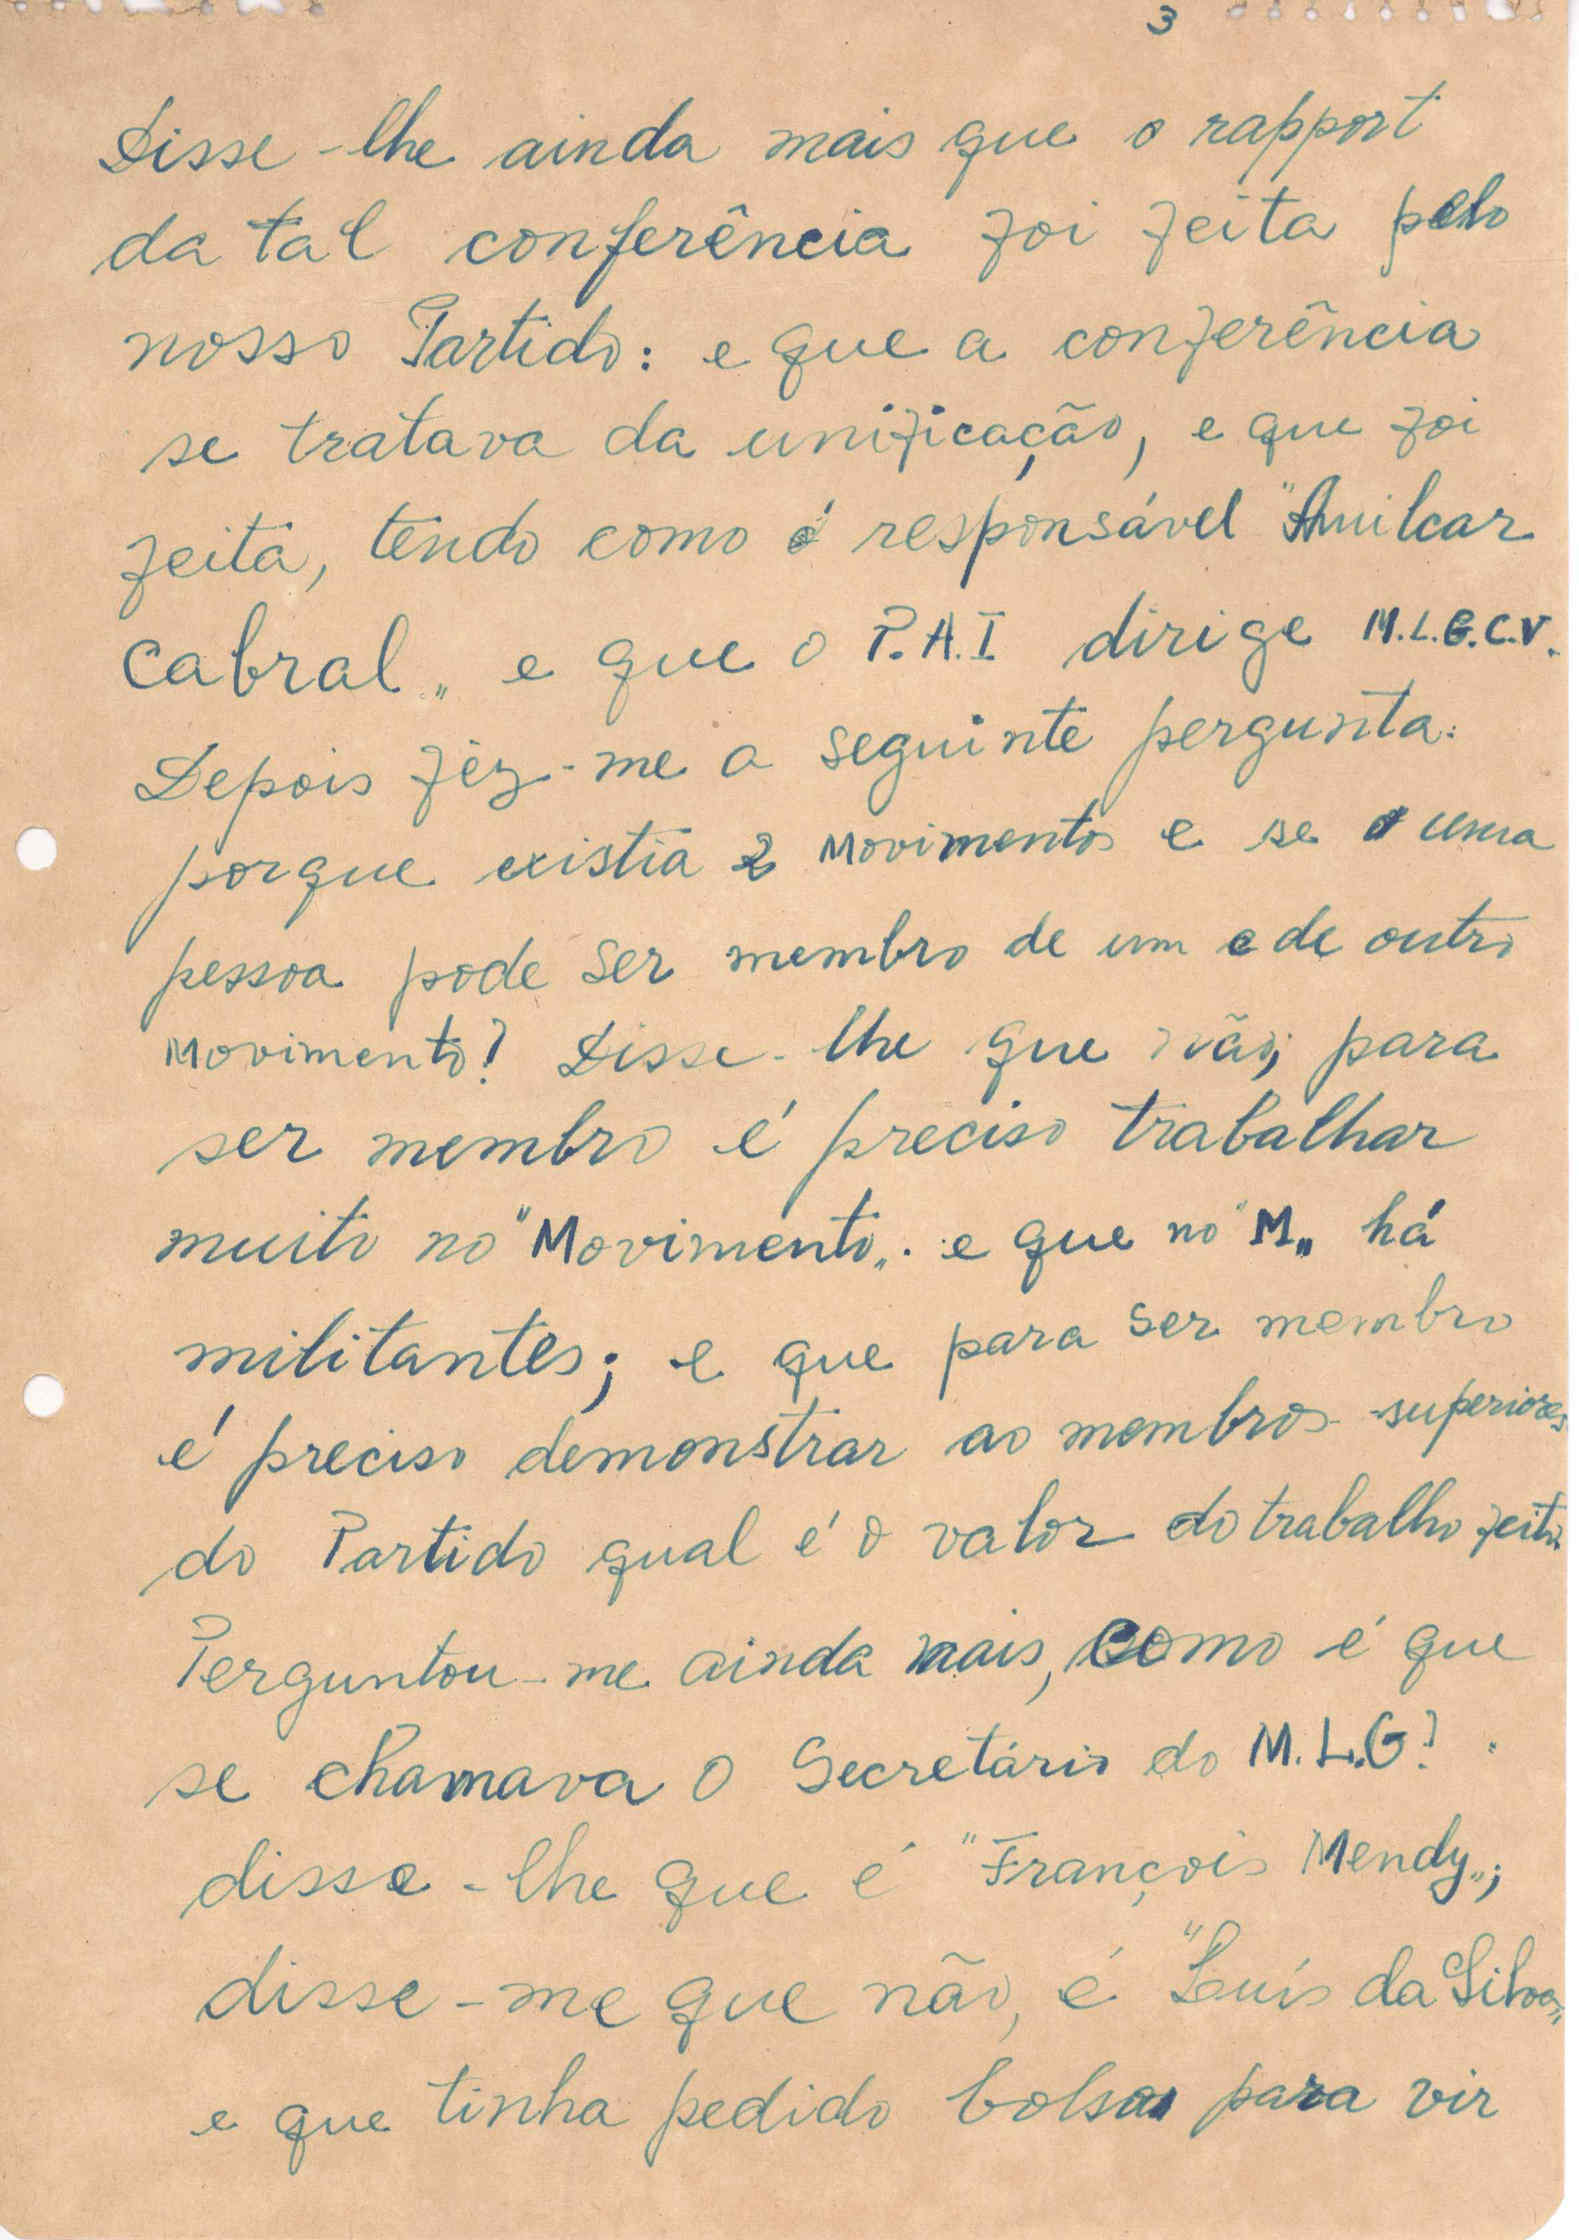 3
Disse-lhe ainda mais que o rapport
da tal conferência foi feita pelo
nosso Partido: e que a conferência
se tratava da unificação, e que foi
feita, tendo como é responsável "Amilcar
Cabral„ e que o P.A.I dirige M.L.G.C.V.
Depois fêz-me a seguinte pergunta:
porque existia 2 Movimentos e se a uma
pessoa pode ser membro de um e de outro
Movimento? Disse-lhe que não; para
ser membro é preciso trabalhar
muito no "Movimento„. e que no "M„ há
militantes; e que para ser membro
é preciso demonstrar ao membros superiores
do Partido qual é o valor do trabalho feito.
Perguntou-me ainda mais, como é que
se chamava o Secretário do M.L.G?.
disse-lhe que é "François Mendy„;
disse-me que não, é "Luís da Silva„,
e que tinha pedido bolsas para vir